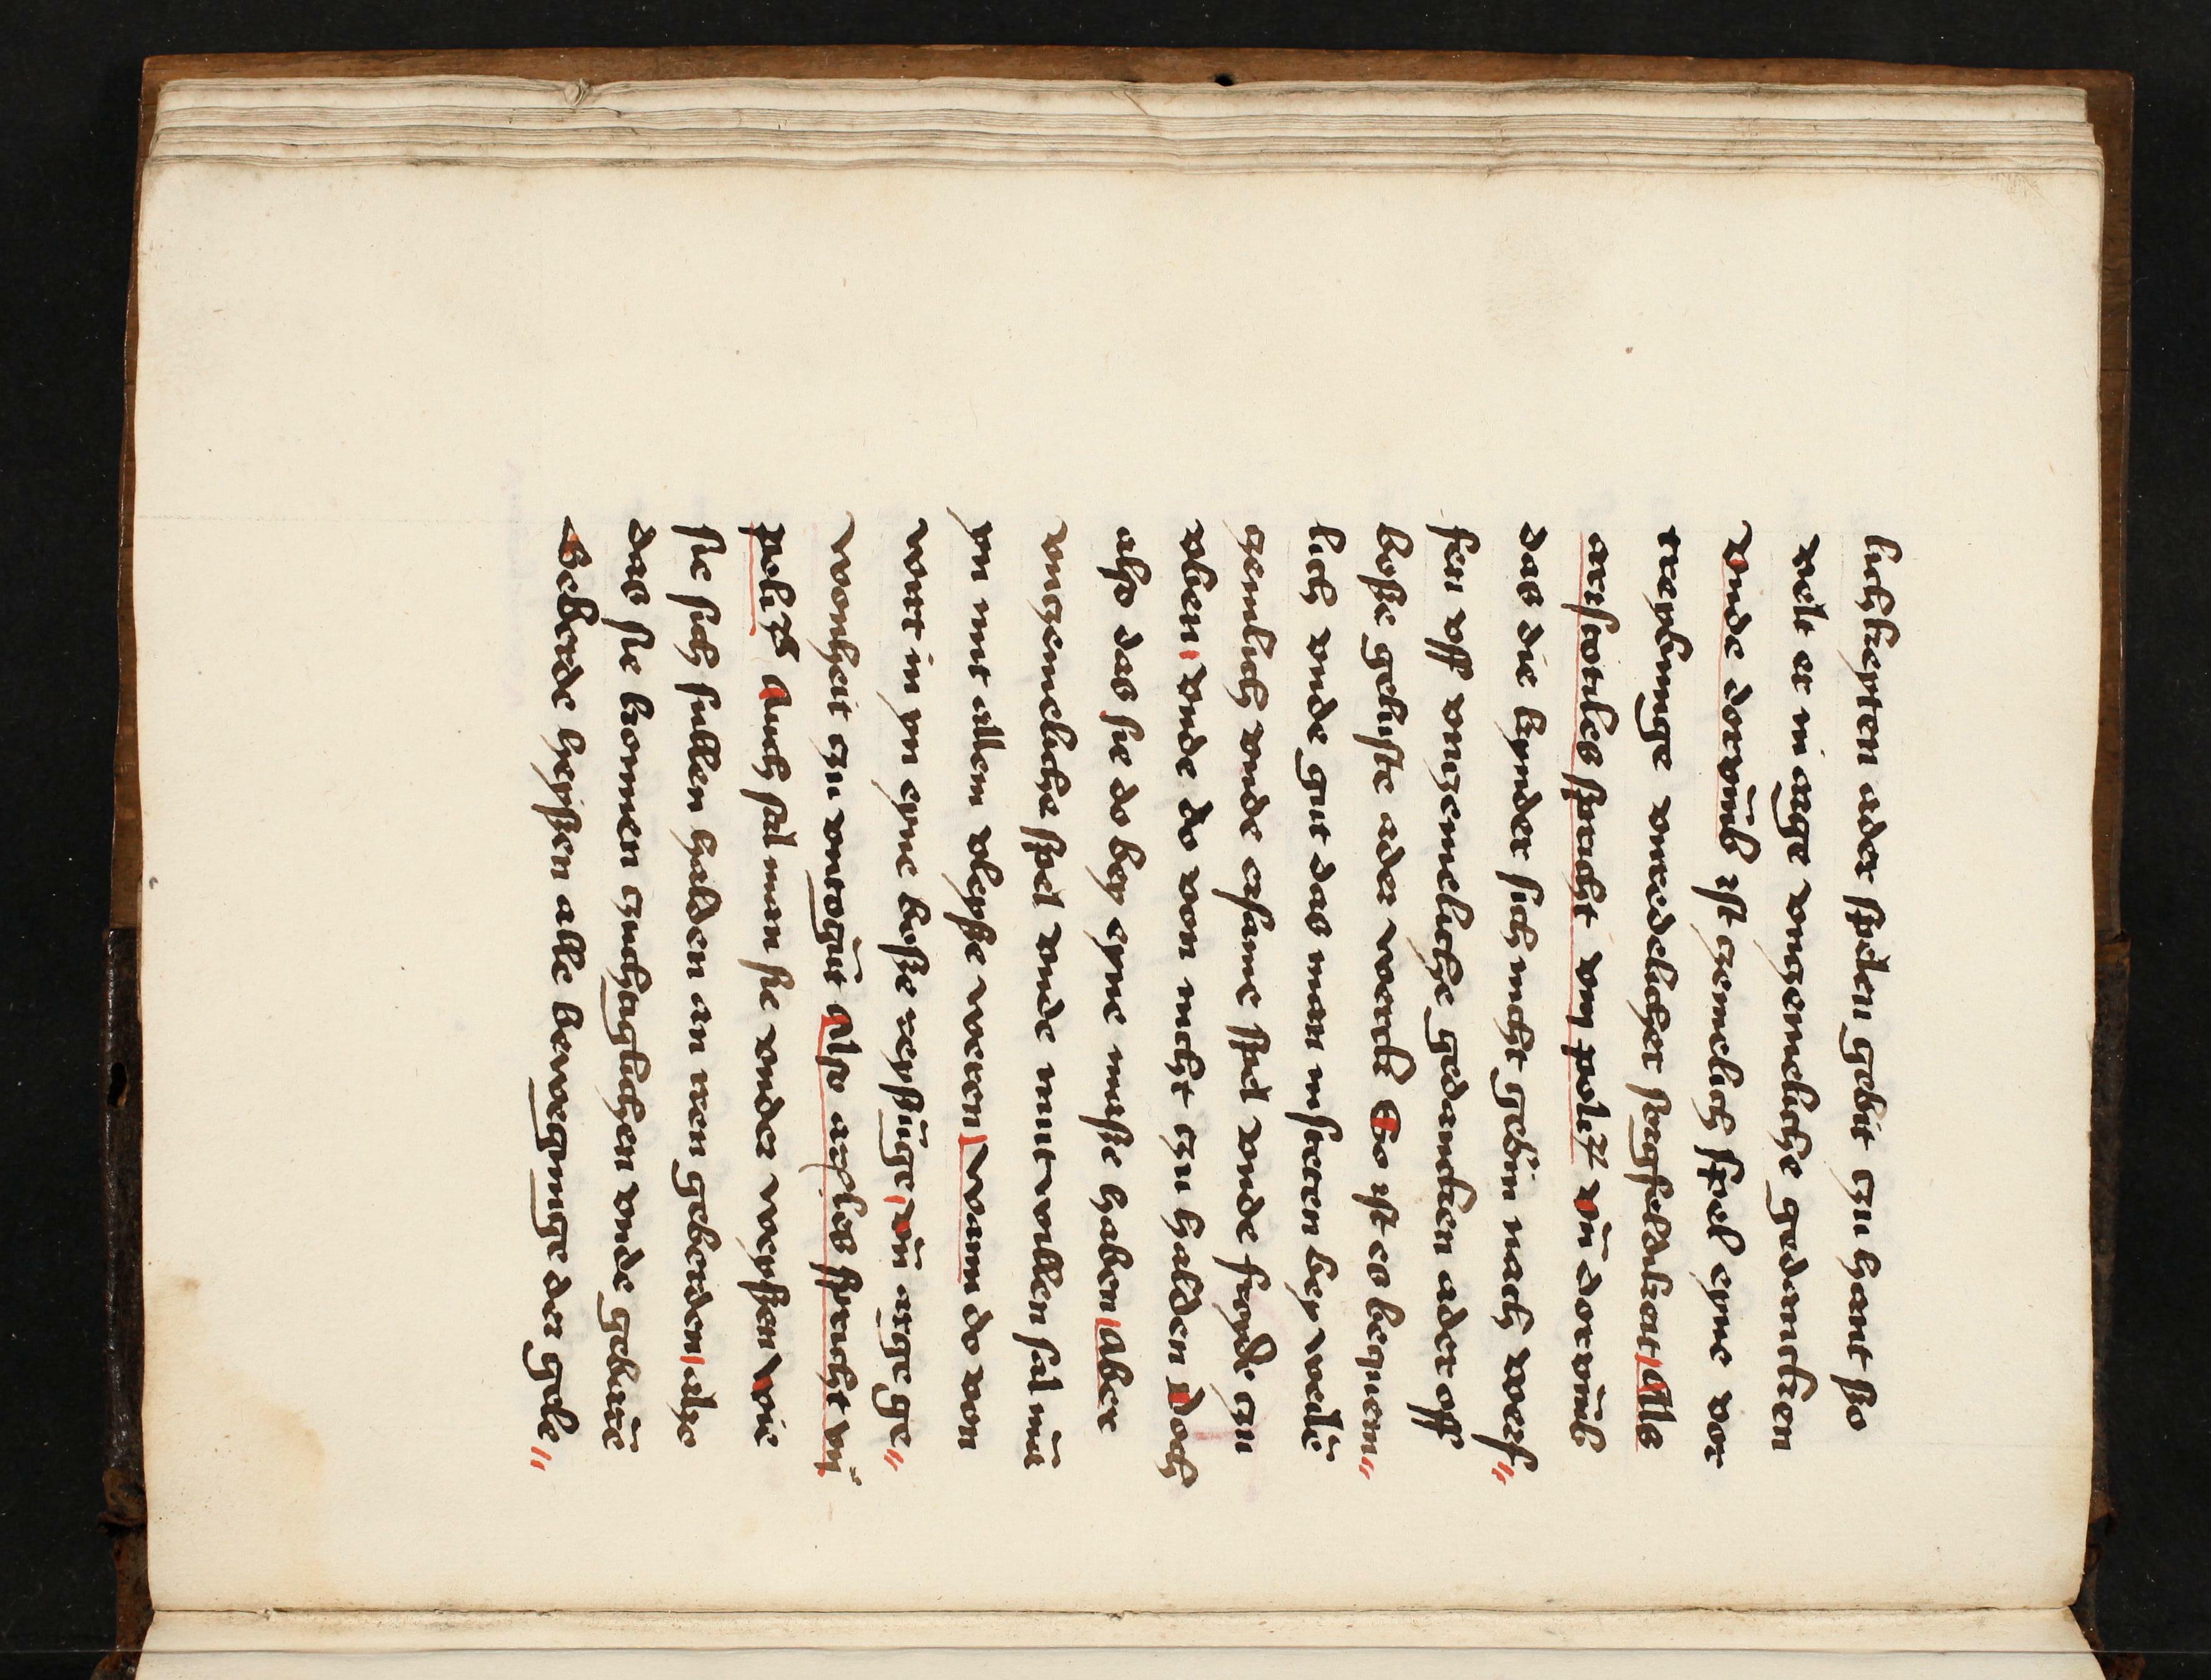 lichkeyten ader spelen gebit czu hant ßo
velt er in arge vnczemeliche gedancken
vnde dorūmb ist czemelich spel eyne vor
treybunge vnredelicher sorgfeldikeit Als
arestotiles spricht vm polit͛ vn̄ dorūmb
das die kynder sich nicht gebin nach werf"
fen vff vnczemeliche gedancken ader off
boße geluste ader werck So ist es bequem"
lich vnde gut das man in steten bey weile
czemlich vnde ersame spel vnde froyde czu
vben vnde do von nicht czu halden Doch
also das sie do bey eyne maße haben Aber
vnczemeliche spel vnde mutwillen sal mā
yn mit allem vleyße weren Wann do von
wirt in yn eyne boße reyßūge vn̄ arge ge"
wonheit czu vntogūt Also arestos spricht vij
polit͛ Auch sal man sie vnder weyßen wie
sie sich sullen halden an iren geberden also
das sie komen czuchtiglichen vnde gebuere
Geberde heyssen alle bewegunge der gele"